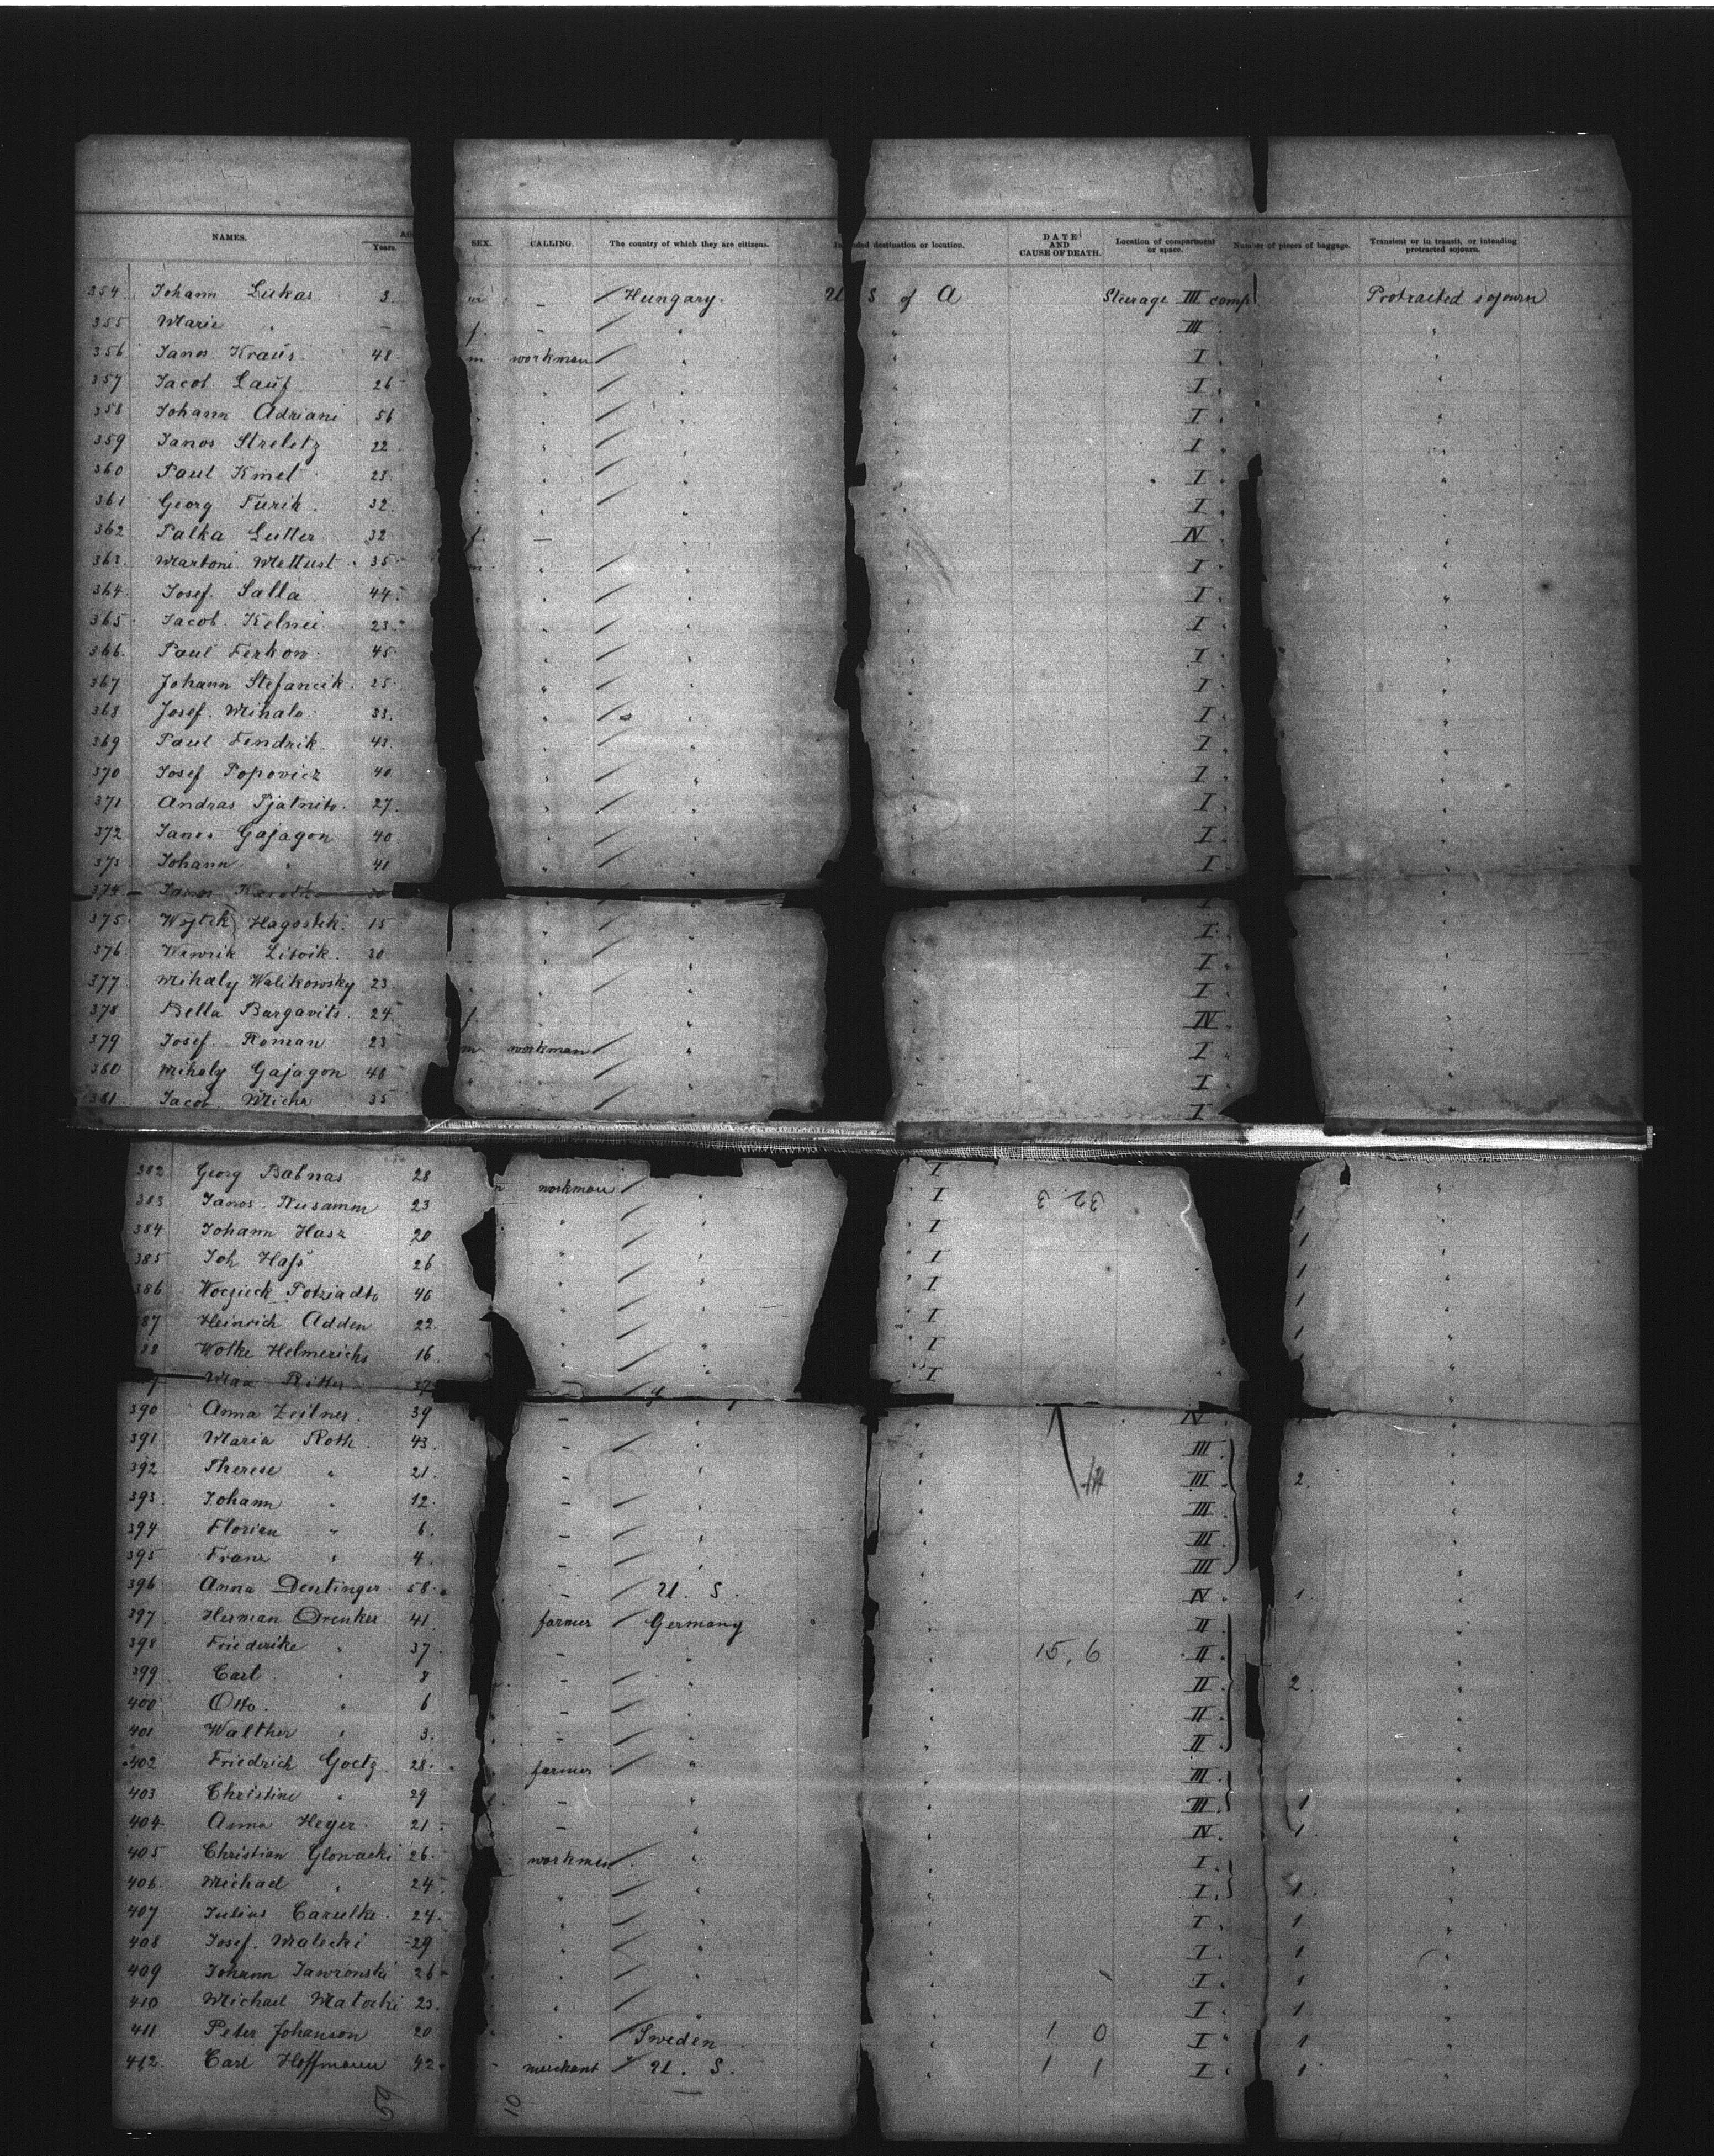 NAMES. Years. SEX. CALLING. The country of which they are citizens. destination or location. DATE AND CAUSE OF DEATH. Location of compartment or space. Number of pieces of baggage. Transient or in transit, or intending protracted sojourn.
354 Johann Lukas 3 m - Hungary. U S of A Steerage III comp Protracted sojourn
355 Marie " - f. - " " III "
356 Janos Kraus 48 m workman " " I "
357 Jacob Lauf 26 " " " I "
358 Johann Adriani 56 " " " I "
359 Janos Streletz 22 " " " I "
360 Paul Kmet 23 " " " I "
361 Georg Furik 32 " " " I "
362 Palka Lutter 32 f. - " " IV "
363 Martoni Mettust 35 m " " " I "
364 Josef Salla 44 " " " I "
365 Jacob Kelnei 23 " " " I "
366 Paul Ferkow 45 " " " I "
367 Johann Stefancik 25 " " " I "
368 Josef Mihalo 33 " " " I "
369 Paul Fendrik 43 " " " I "
370 Josef Popovicz 40 " " " I "
371 Andras Pjatnito 27 " " " I "
372 Janos Gajagon 40 " " " I "
373 Johann " 41 " " " I "
374 Janos
375 Wojtek Hagostek 15 " " " I "
376 Wawrik Litvik 30 " " " I "
377 Mihaly Walikowsky 23 " " " I "
378 Bella Bargavits 24 f. " " IV "
379 Josef Roman 23 m workman " " I "
380 Mihaly Gajagon 48 " " " I "
381 Jacob Micha 35 " " I
382 Georg Babnas 28 workman " I "
383 Janos Rusamm 23 " " I 32.3 1 "
384 Johann Hasz 20 " " I 1 "
385 Joh Hass 26 " " I 1 "
386 Woczieck Potziadto 46 " " I 1 "
87 Heinrich Adden 22 " " " I 1 "
88 Wolke Helmerichs 16 " " " I 1 "
Max Ritter 27 I
390 Anna Zeilner 39 - " IV "
391 Maria Roth 43 - " " III "
392 Therese " 21 - " " III 2 "
393 Johann " 12 - " " III "
394 Florian " 6 - " " III "
395 Franz " 4 - " " III "
396 Anna Dentinger 58 - U. S. " IV 1 "
397 Herman Drenker 41 farmer Germany " II "
398 Friederike " 37 - " " 15,6 II "
399 Carl " 8 - " " II 2 "
400 Otto " 6 - " " II "
401 Walther " 3 - " " II "
402 Friedrich Goetz 28 farmer " " III "
403 Christine " 29 f. - " " III 1 "
404 Anna Heyer 21 - " " IV 1 "
405 Christian Glowacki 26 workmen " " I "
406 Michael " 24 " " " I 1 "
407 Julius Carulke 24 " " " I 1 "
408 Josef Malecki 29 " " " I 1 "
409 Johann Jawronski 26 " " " I 1 "
410 Michael Matocki 23 " " " I 1 "
411 Peter Johanson 20 " Sweden " 1 0 I 1 "
412 Carl Hoffmann 42 merchant U. S. " 1 1 I 1 "
10